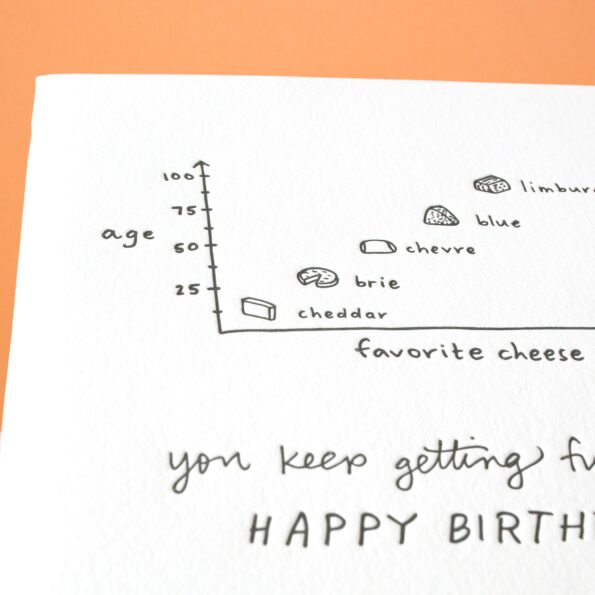 100
75
age
50
25
limbur
blue
chevre
brie
cheddar
favorite cheese
you keep getting fu
HAPPY BIRTH